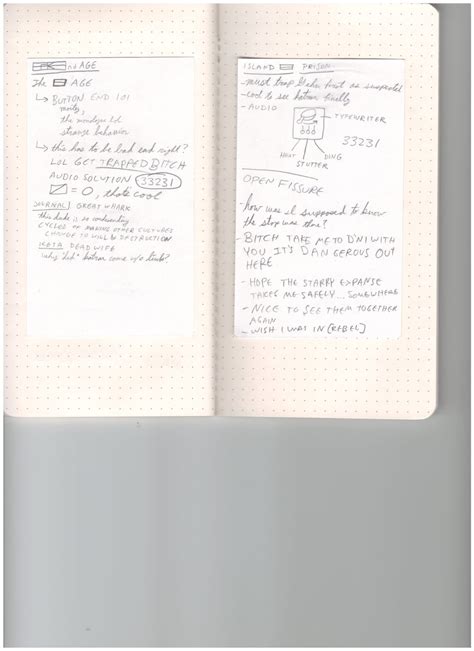 AGE
The AGE
↳ BUTTON END 101
strange behavior
↳ this has to be bad end right?
LOL GET TRAPPED BITCH
AUDIO SOLUTION 33231
= 0, that's cool
JOURNAL GREAT WHARK
this dude is so
CYCLES OF MAKING OTHER CULTURES
CHANGE TO WILL be DESTRUCTION
KETA DEAD WIFE
why didn't come w/a
ISLAND PRISON
- must trap first as suspected
- cool to see finally
- AUDIO
TYPEWRITER
33231
DING
STUTTER
OPEN FISSURE
- how was I supposed to know
the stop was there?
- BITCH TAKE ME TO D'NI WITH
YOU IT'S DANGEROUS OUT
HERE
- HOPE THE STARRY EXPANSE
TAKES ME SAFELY... SOMEWHERE
- NICE TO SEE THEM TOGETHER
AGAIN
- WISH I WAS IN [REBEL]